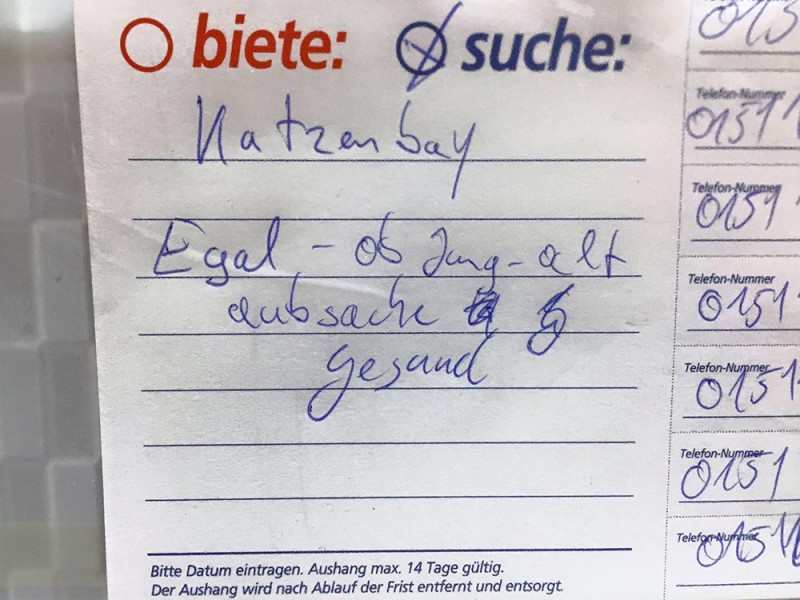 biete: suche:
Katzenbay
Egal - ob Jung - alt
aubsache
gesand
Bitte Datum eintragen. Aushang max. 14 Tage gültig.
Der Aushang wird nach Ablauf der Frist entfernt und entsorgt.
015
Telefon-Nummer
0151
Telefon-Nummer
0151
Telefon-Nummer
0151
Telefon-Nummer
0151
Telefon-Nummer
0151
Telefon-Nummer
0151